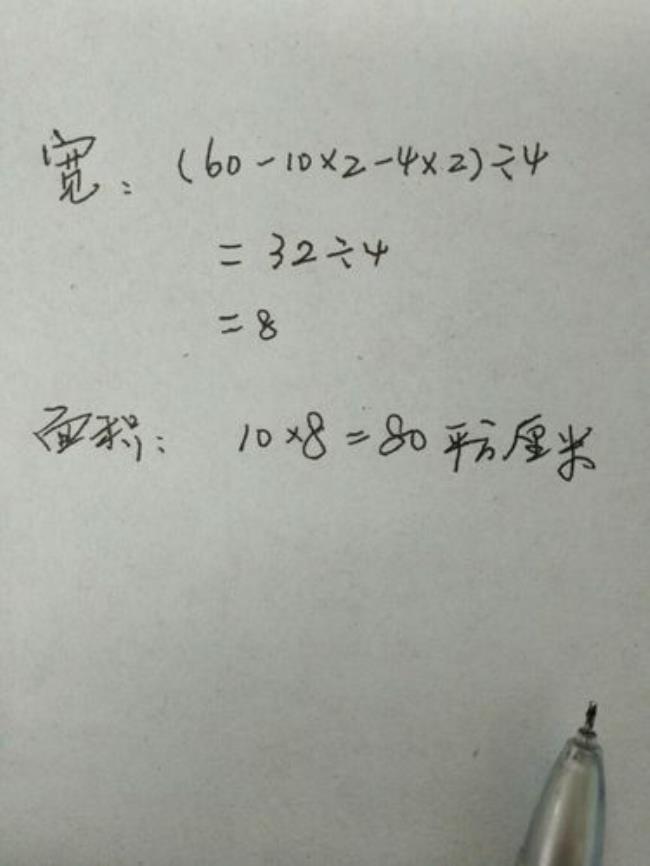 宽：(60-10×2-4×2)÷4
=32÷4
=8
面积：10×8=80平方厘米